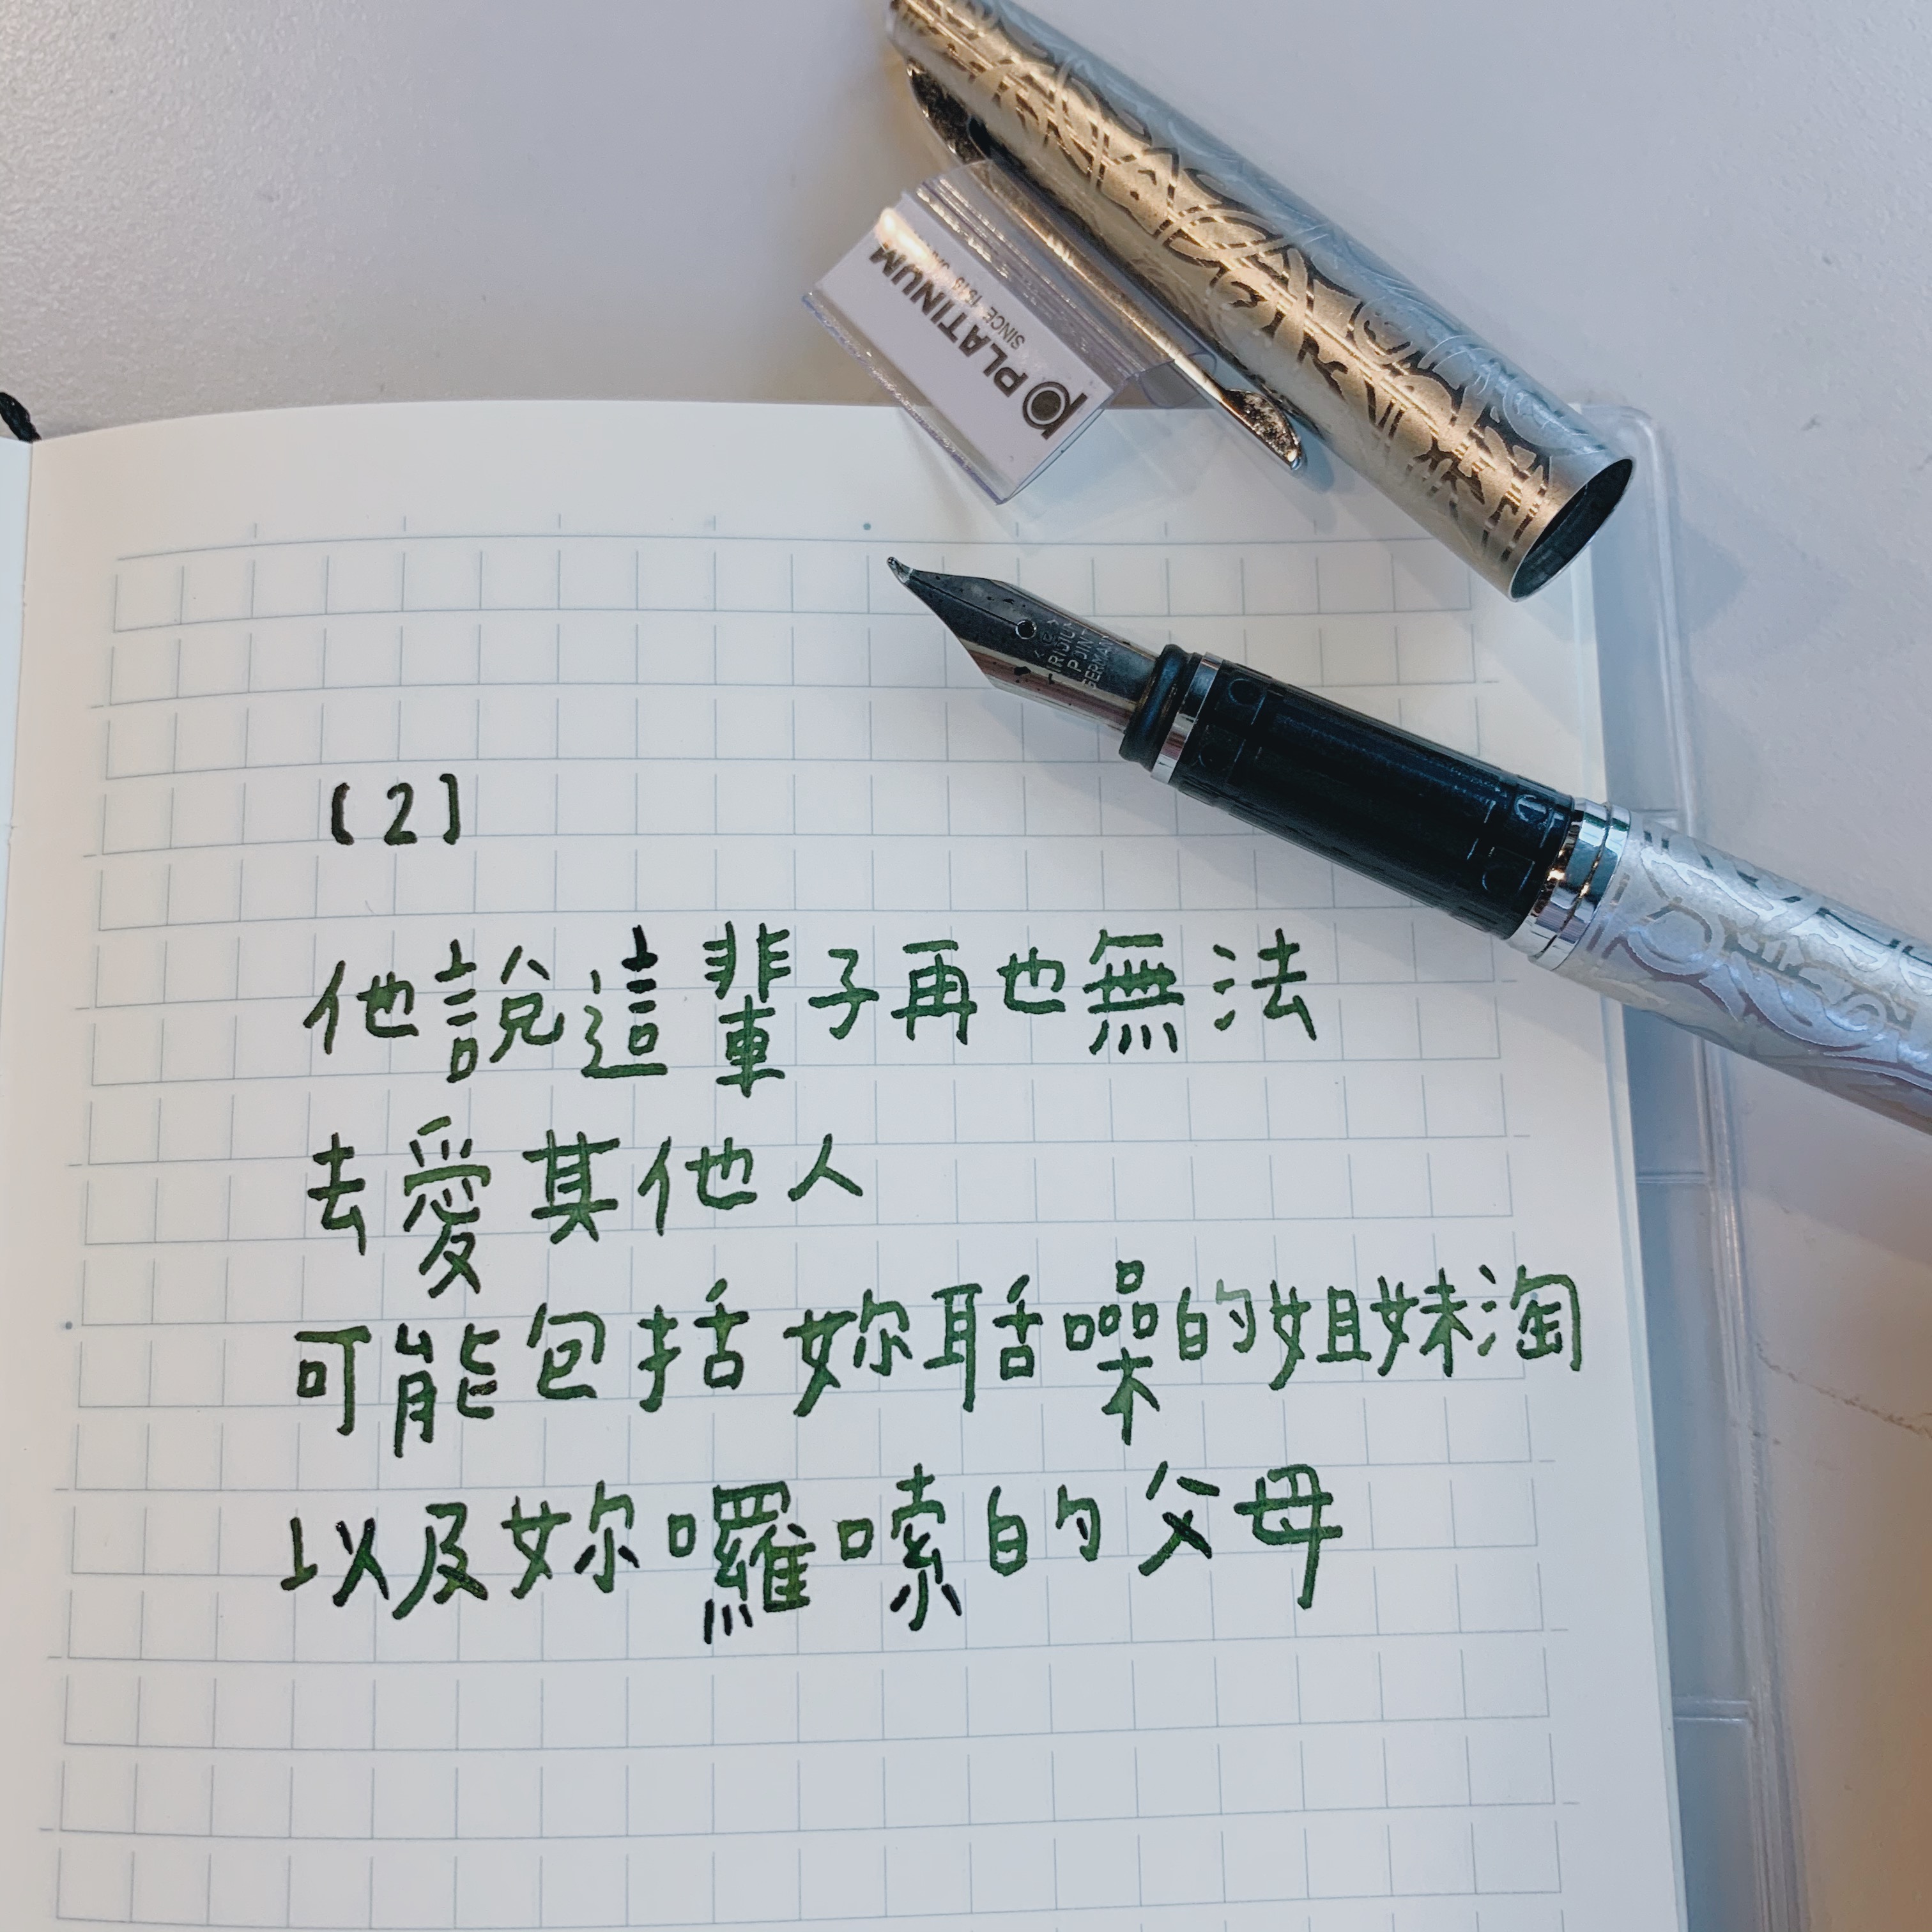 PLATINUM
SINCE 1919
IRIDIUM
POINT
GERMANY
[2]
他說這輩子再也無法
去愛其他人
可能包括妳聒噪的姐妹淘
以及妳囉嗦的父母